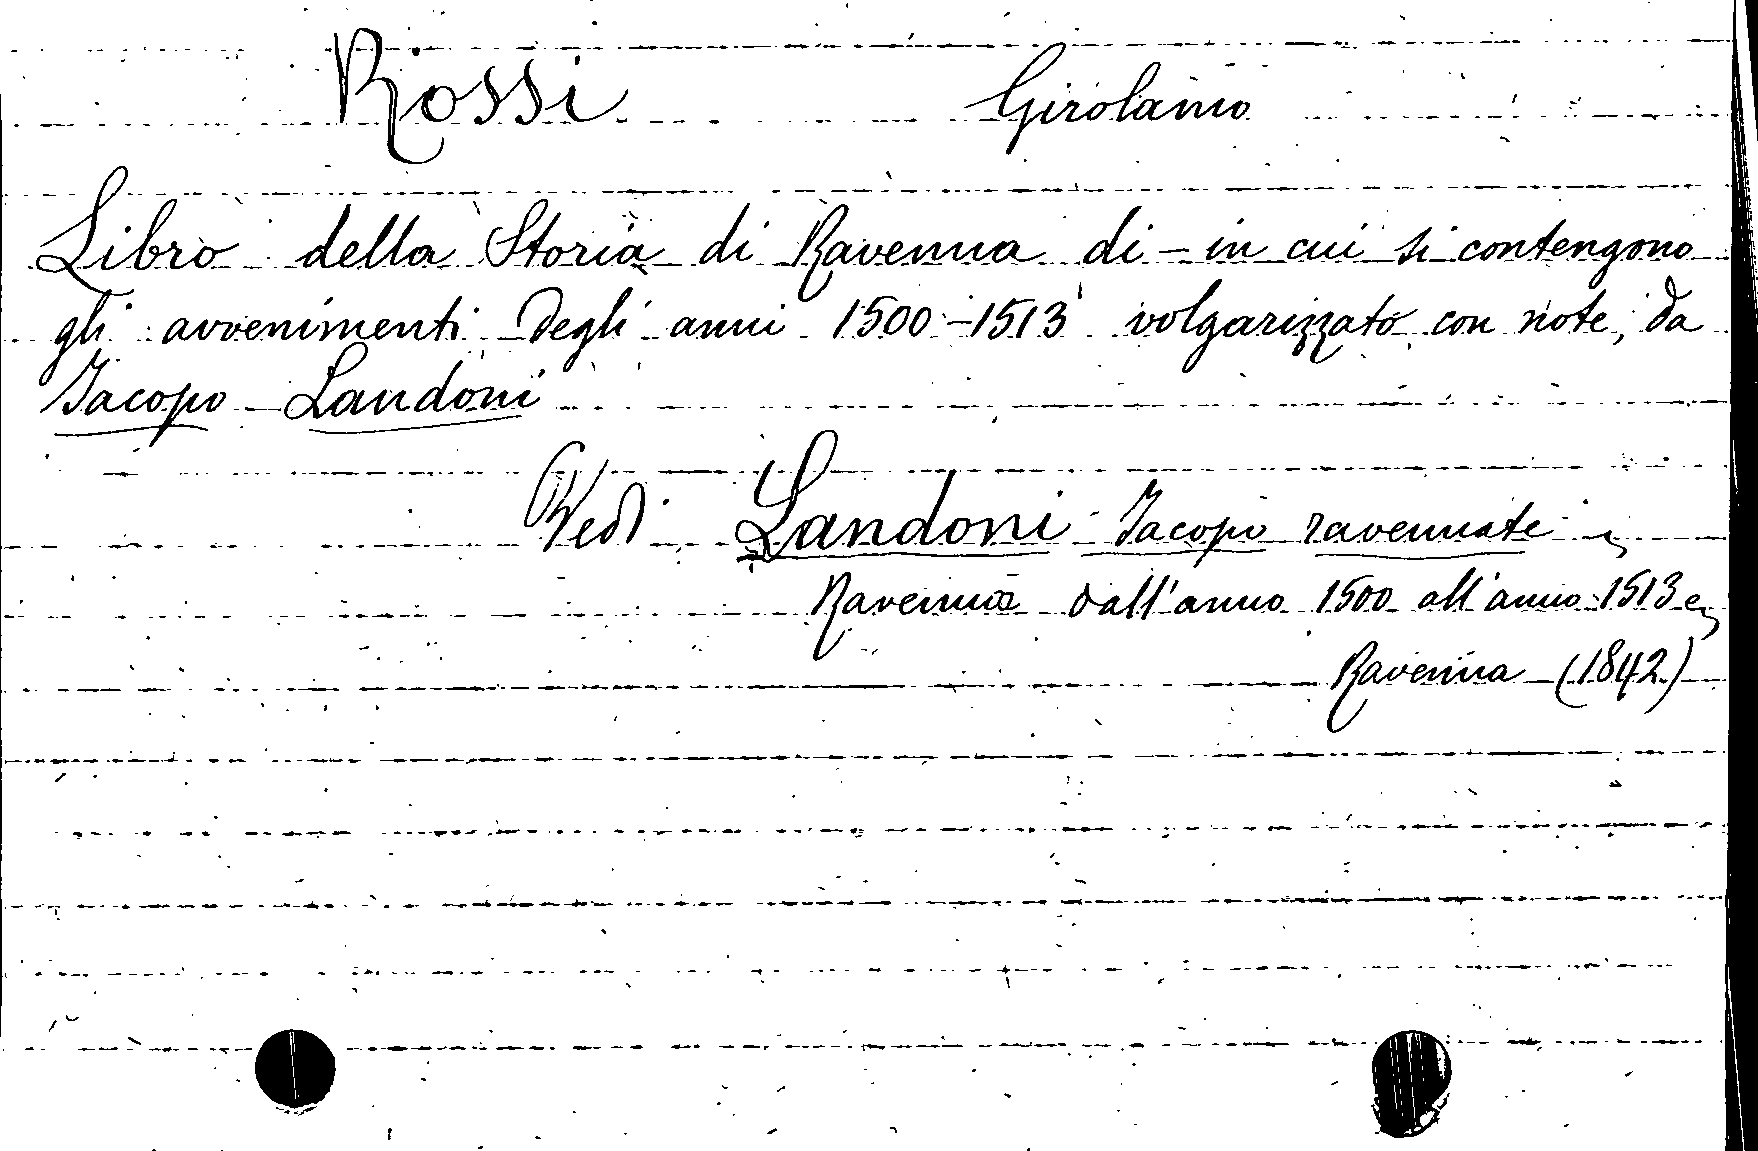 Rossi Girolamo
Libro della Storia di Ravenna di - in cui si contengono
gli avvenimenti degli anni 1500-1513 volgarizzato con note, da
Jacopo Landoni
Vedi Landoni Jacopo ravennate
Ravenna dall'anno 1500 all'anno 1513
Ravenna (1842)